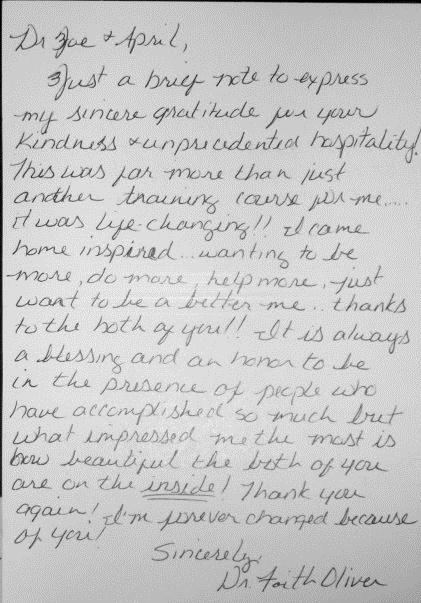 Dr. Joe & April,
Just a brief note to express
my sincere gratitude for your
Kindness & unprecedented hospitality!
This was far more than just
another training course for me....
it was life-changing!! I came
home inspired...wanting to be
more, do more, help more, just
want to be a better me.. thanks
to the both of you!! It is always
a blessing and an honor to be
in the presence of people who
have accomplished so much but
what impressed me the most is
how beautiful the both of you
are on the inside! Thank you
again! I'm forever changed because
of you!
Sincerely,
Dr. Faith Oliver